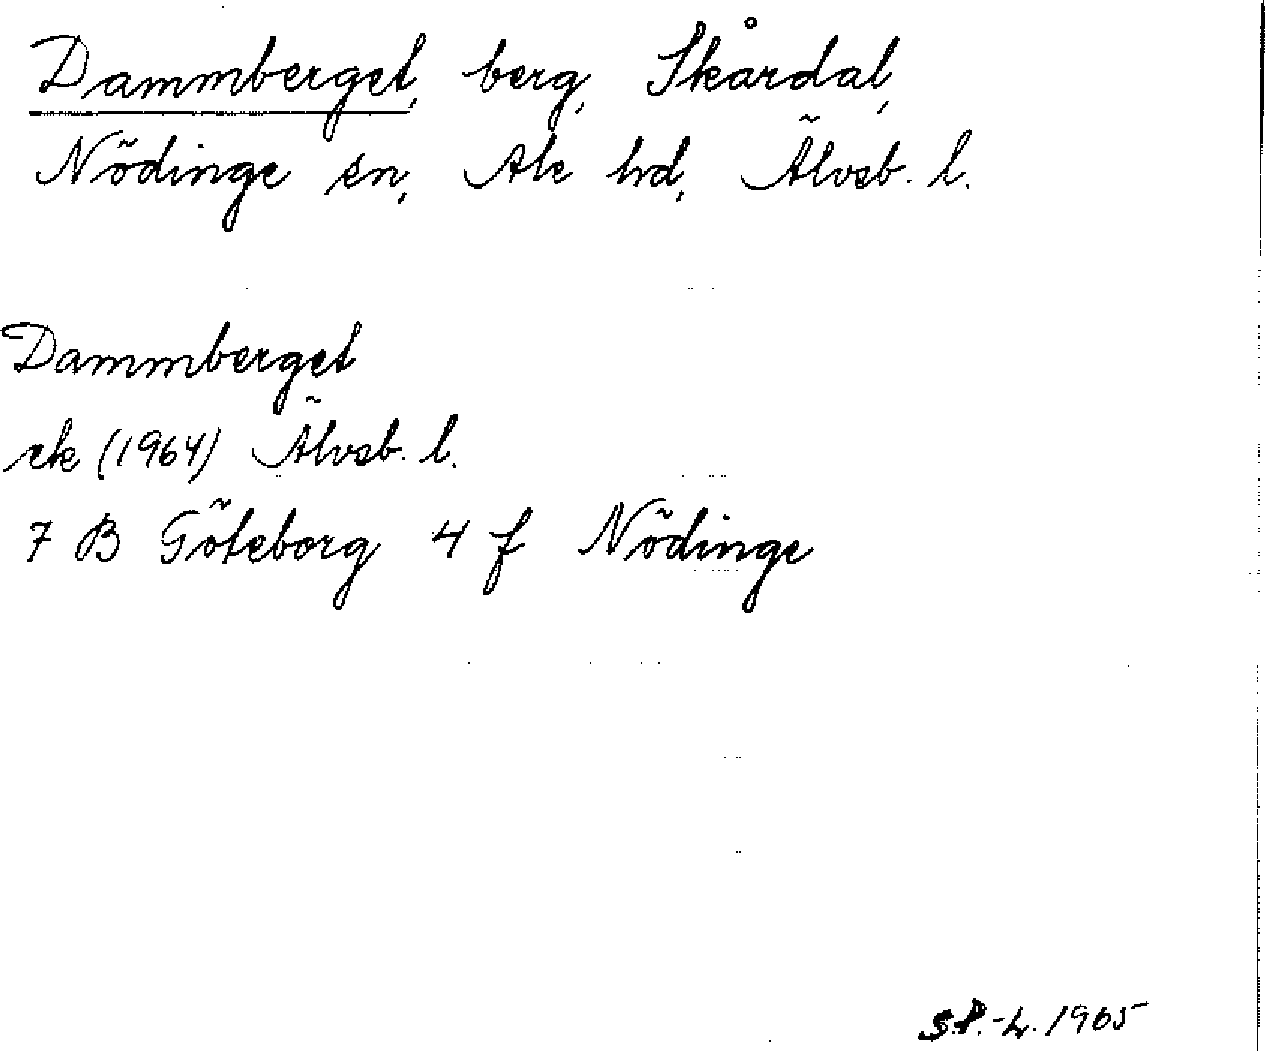 Dammberget, berg, Skårdal,
Nödinge sn, Ale hd, Älvsb. l.
Dammberget
ek (1964) Älvsb. l.
7 B Göteborg 4 f Nödinge
S.P.-L. 1965